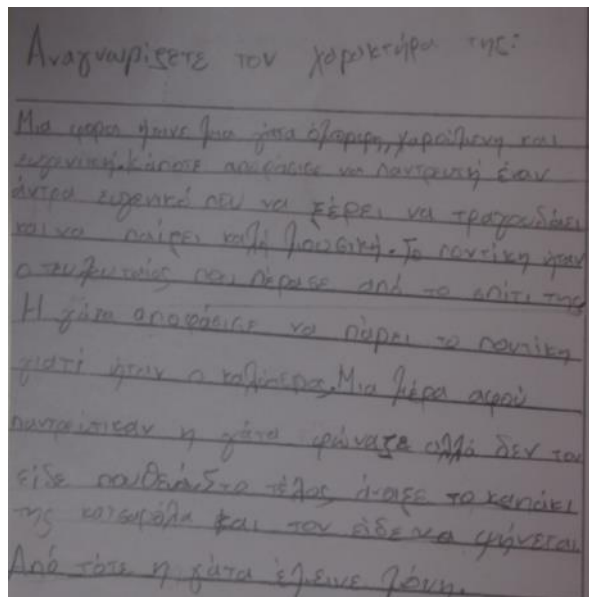 Αναγνωρίζετε τον χαρακτήρα της:
Μια φορα ήτανε μια γάτα όμορφη, χαρούμενη και
ευγενική. Κάποτε αποφάσισε να παντρευτή έναν
άντρα ευγενικό που να ξέρει να τραγουδάει
και να παίρει καλή μουσική. Το ποντίκη ήταν
ο τευλευταίος που πέρασε από το σπίτι της
Η γάτα αποφάσισε να πάρει το ποντίκη
γιατί ήταν ο καλύτερος. Μια μέρα αφού
παντρεύτικαν η γάτα φώναξε αλλά δεν τον
είδε πουθενά. Στο τέλος άνοιξε το καπάκι
της κατσαρόλα και τον είδε να ψήνεται
Από τότε η γάτα έμεινε μόνη.